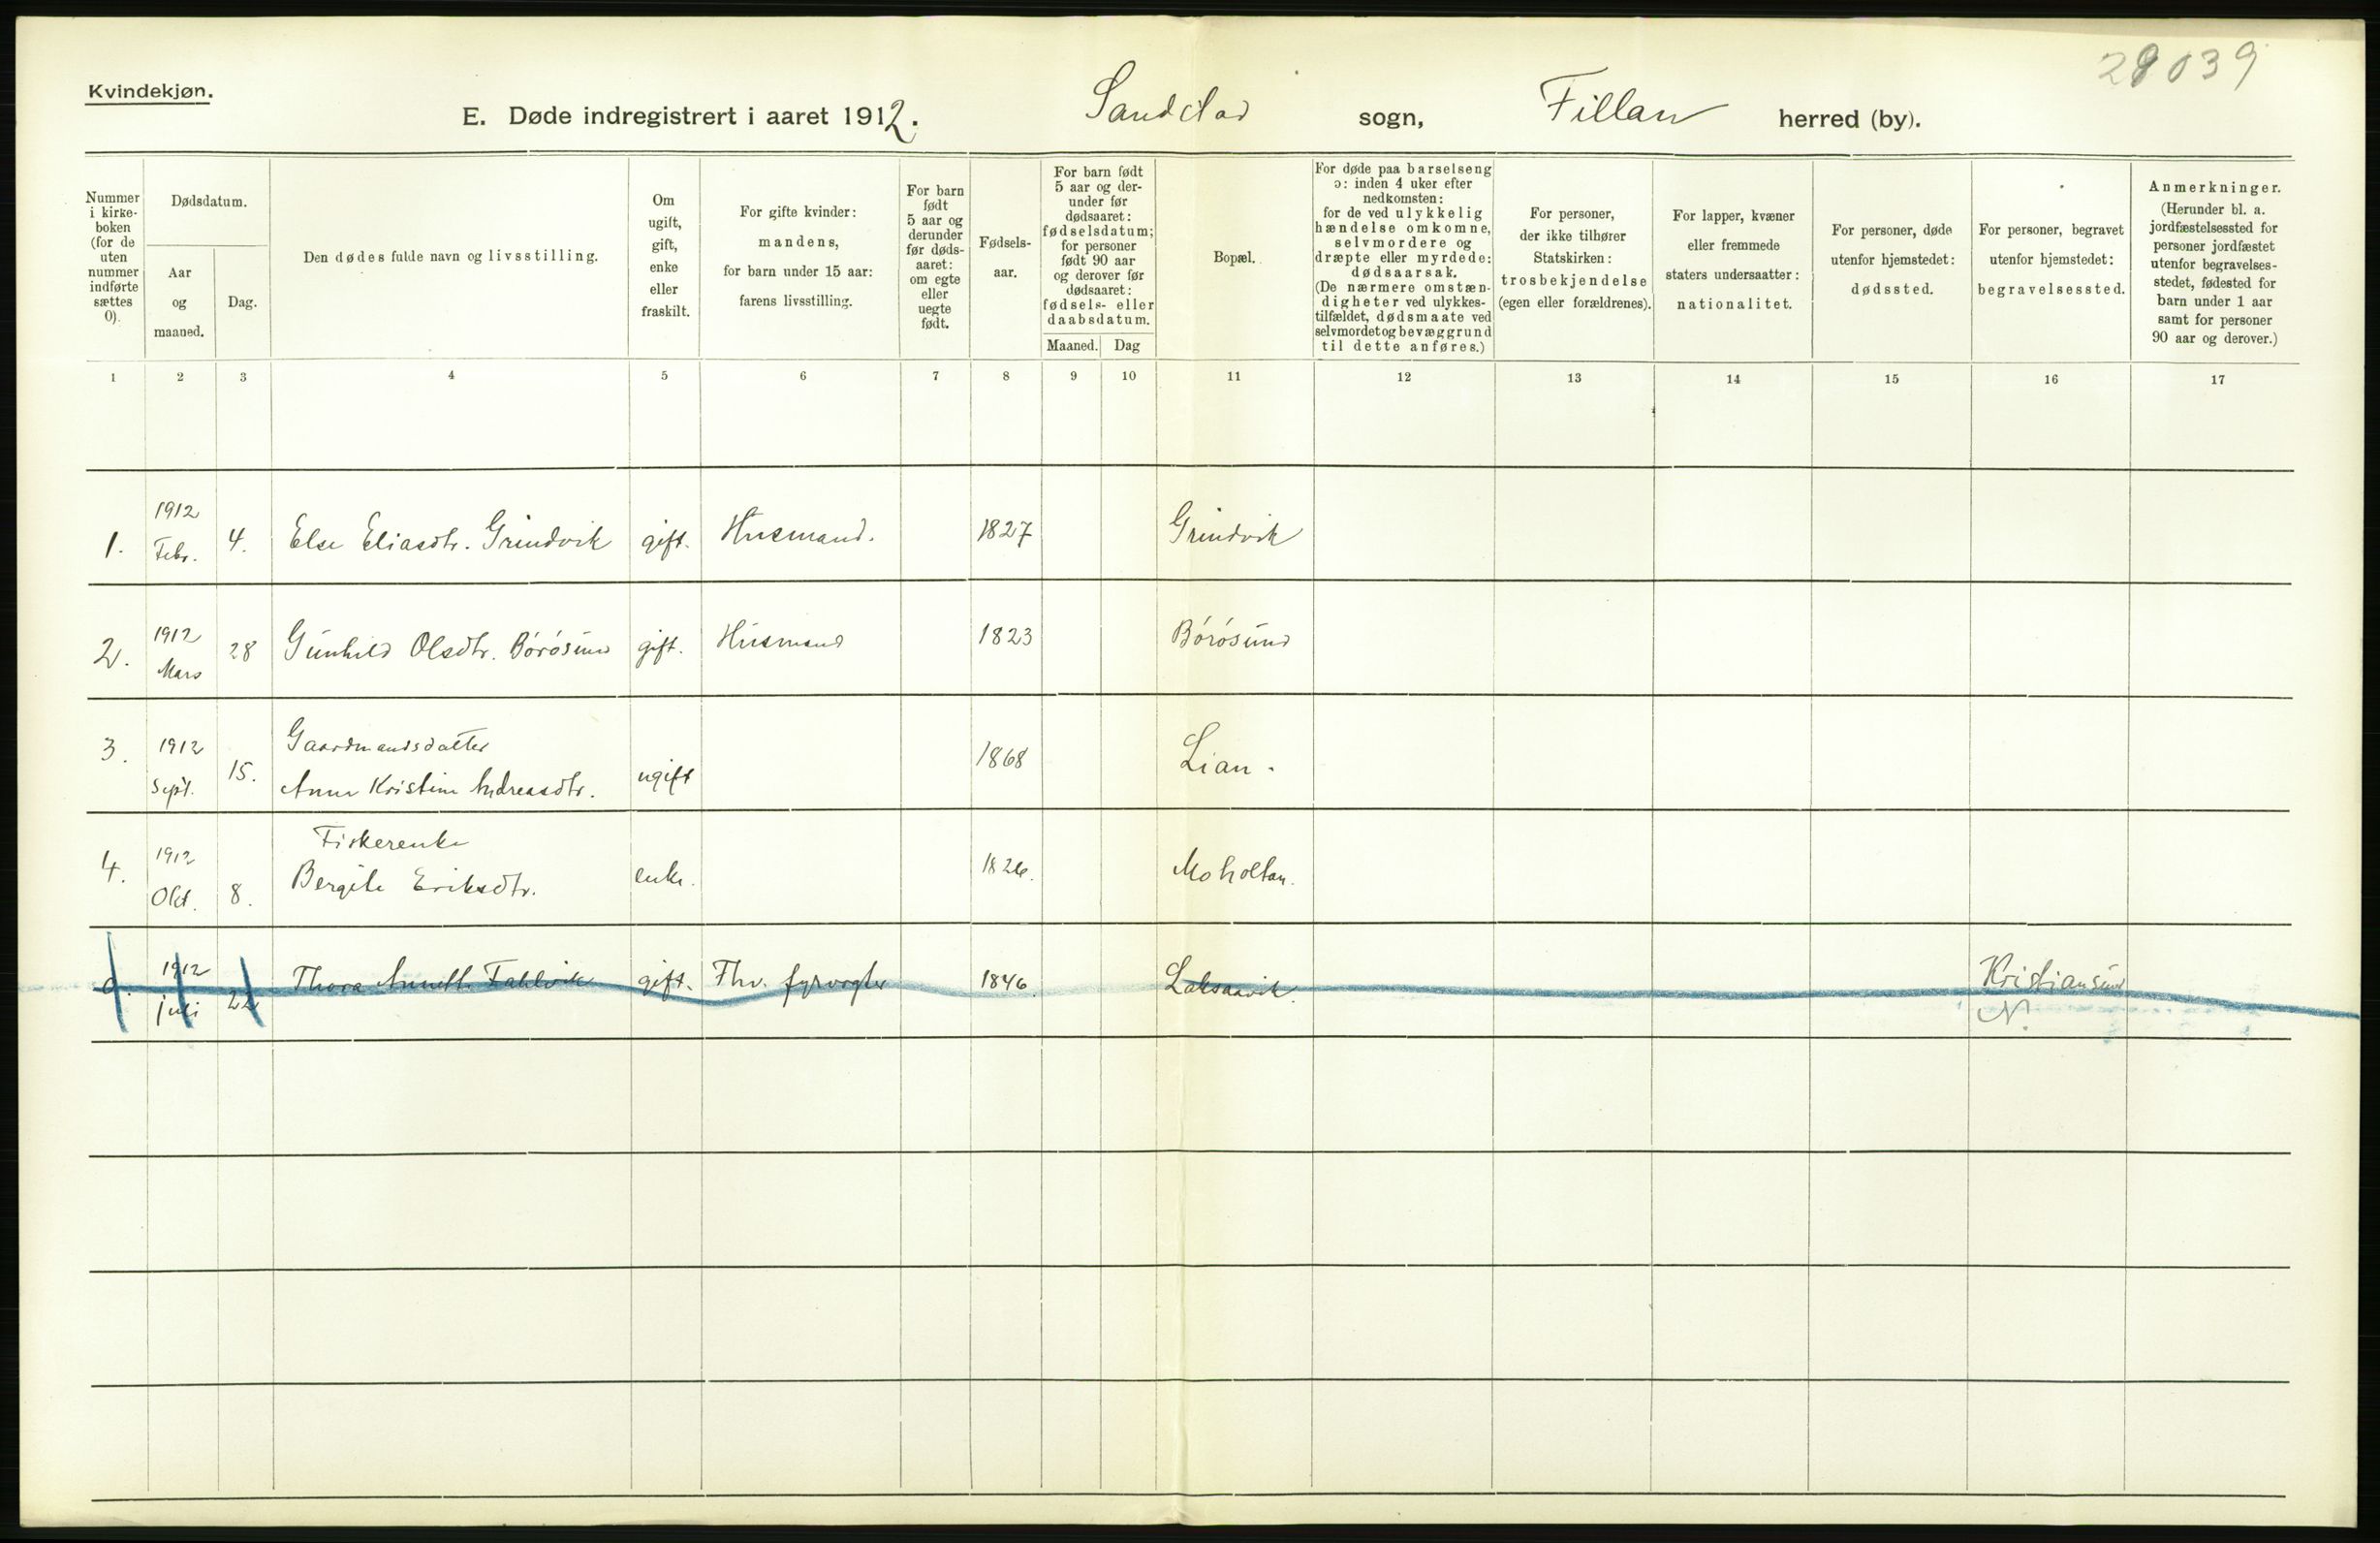 28039
Kvindekjøn.
E. Døde indregistrert i aaret 1912. Sandstad sogn, Fillan herred (by).
Nummer
i kirke-
boken
(for de
uten
nummer
indførte
sættes
0).
Dødsdatum.
Aar
og
maaned.
Dag.
Den dødes fulde navn og livsstilling.
Om
ugift,
gift,
enke
eller
fraskilt.
For gifte kvinder:
mandens,
for barn under 15 aar:
farens livsstilling.
For barn
født
5 aar og
derunder
før døds-
aaret:
om egte
eller
uegte
født.
Fødsels-
aar.
For barn født
5 aar og der-
under før
dødsaaret:
fødselsdatum;
for personer
født 90 aar
og derover før
dødsaaret:
fødsels- eller
daabsdatum.
Maaned. Dag
Bopæl.
For døde paa barselseng
ɔ: inden 4 uker efter
nedkomsten:
for de ved ulykkelig
hændelse omkomne,
selvmordere og
dræpte eller myrdede:
dødsaarsak.
(De nærmere omstæn-
digheter ved ulykkes-
tilfældet, dødsmaate ved
selvmordet og bevæggrund
til dette anføres.)
For personer,
der ikke tilhører
Statskirken:
trosbekjendelse
(egen eller forældrenes).
For lapper, kvæner
eller fremmede
staters undersaatter:
nationalitet.
For personer, døde
utenfor hjemstedet:
dødssted.
For personer, begravet
utenfor hjemstedet:
begravelsessted.
Anmerkninger.
(Herunder bl. a.
jordfæstelsessted for
personer jordfæstet
utenfor begravelses-
stedet, fødested for
barn under 1 aar
samt for personer
90 aar og derover.)
1 2 3 4 5 6 7 8 9 10 11 12 13 14 15 16 17
1912
1. Febr. 4. Else Eliasdtr. Grindvik gift. Husmand. 1827 Grindvik
1912
2. Mars 28 Gunhild Olsdtr. Börösund gift. Husmand 1823 Börösund
Gaardmandsdatter
3. 1912
Sept. 15. Anne Kristine Andreasdtr. ugift 1868 Lian.
Fiskerenke
4. 1912
Okt. 8. Bergite Eriksdtr. enke. 1826. Moholtan.
1912
0. juli 22 Thora Annette Fahlvik gift. Fhv. fyrvogter 1846. Laksaavik. Kristiansund
N.